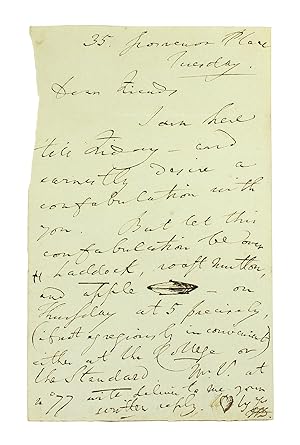 35. Grosvenor Place
Tuesday.
Dear Friends
I am here
till Friday – and
earnestly desire a
confabulation with
you. But let this
confabulation be over
Haddock, roast mutton,
and apple – on
Thursday at 5 precisely,
(if not egregiously inconvenient
either at the College or
the Standard. Mr V. at
no 77 will deliver to me your
written reply. by